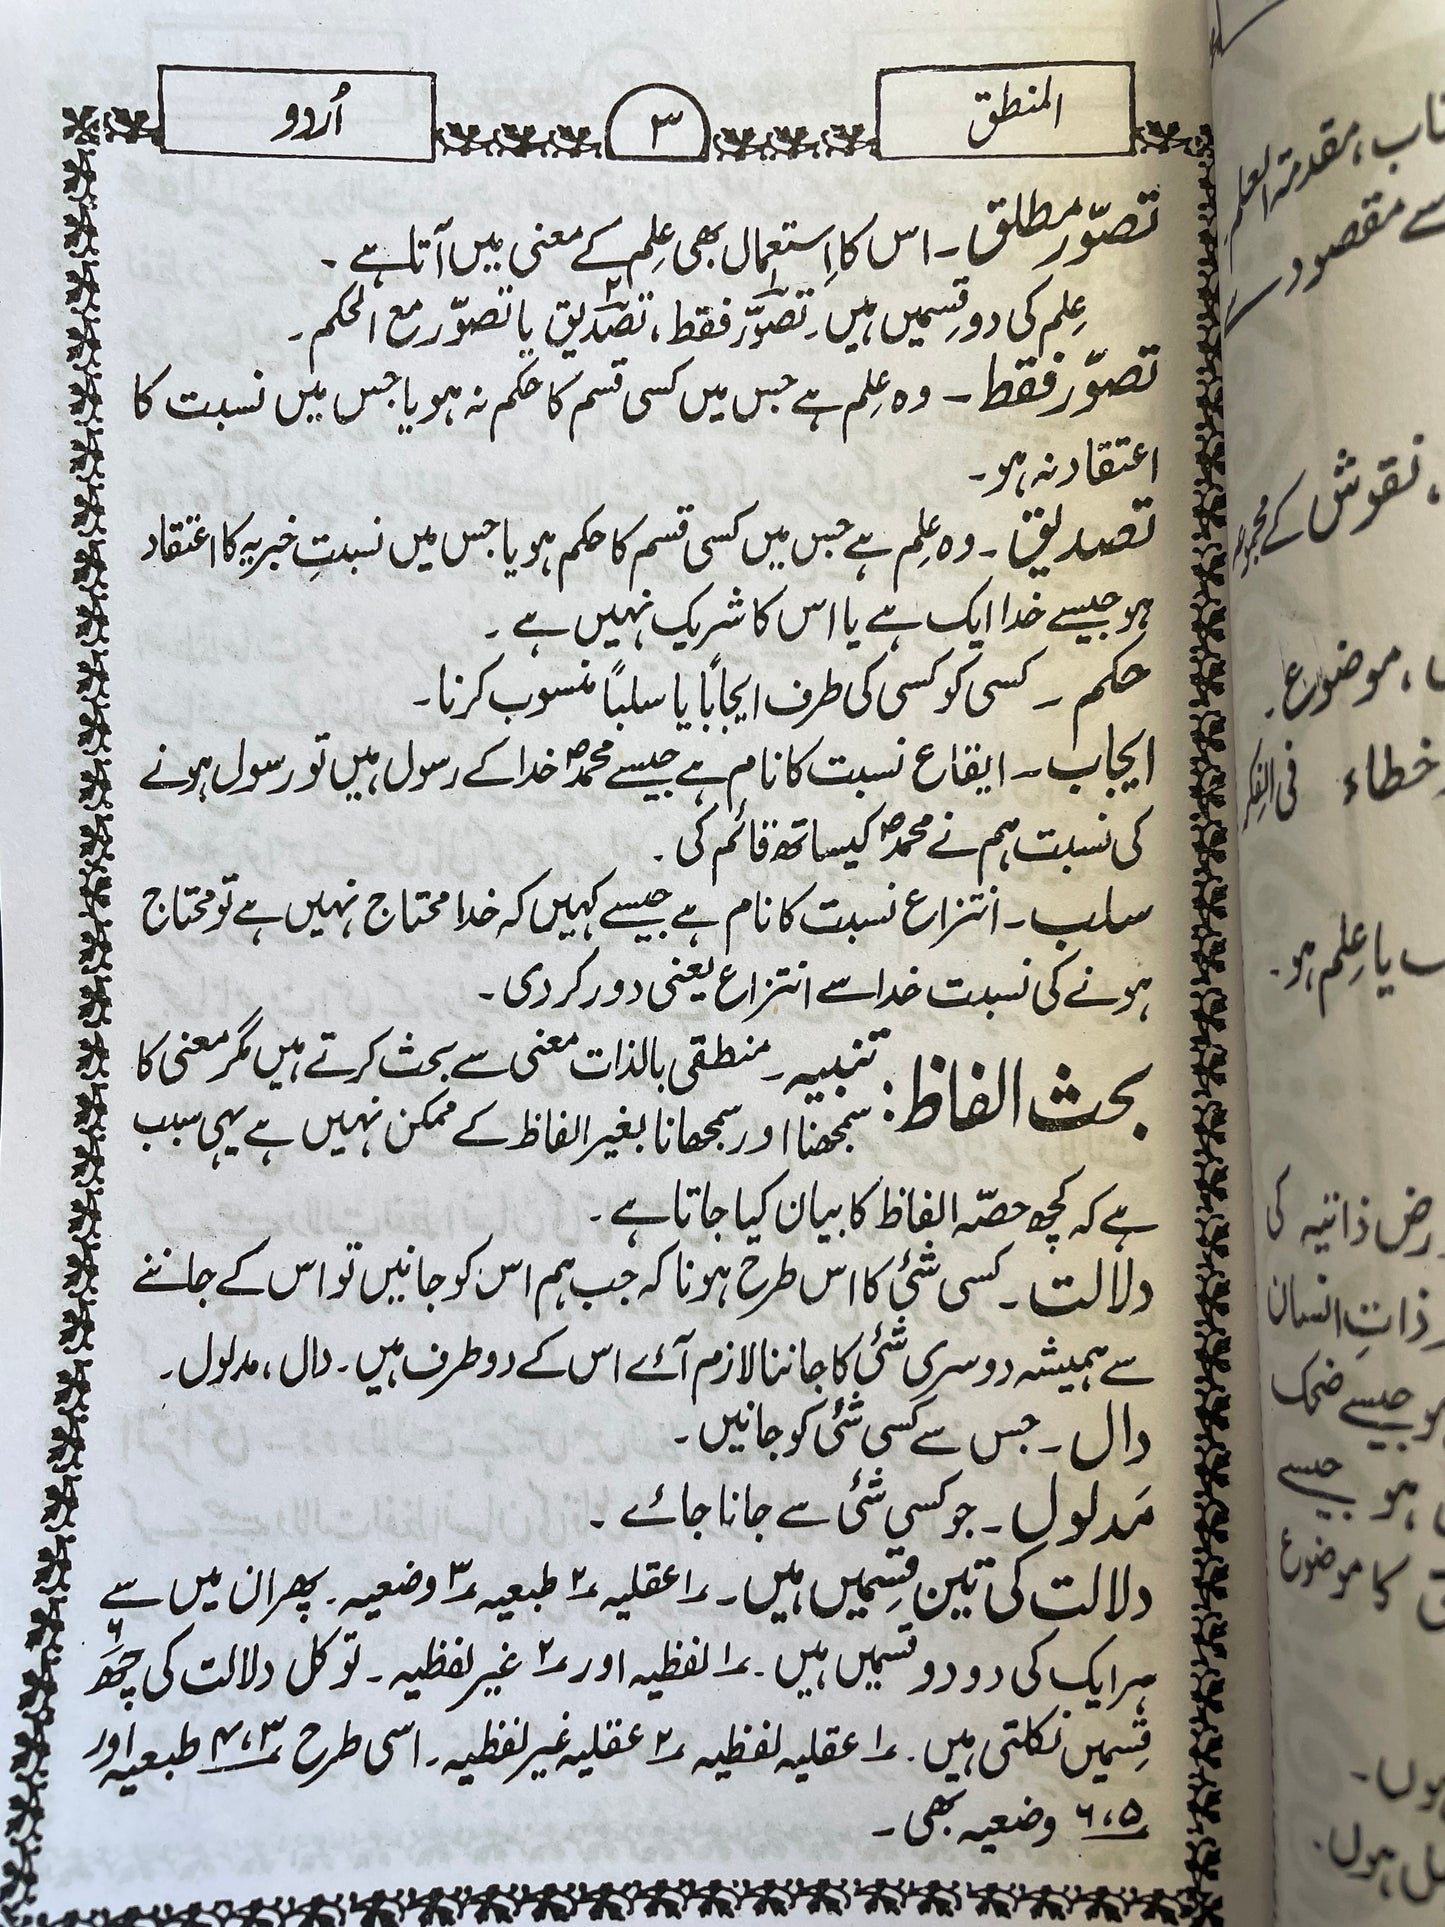 المنطق
۳
اُردو
تصوّر مطلق ۔ اس کا اِستعمال بھی عِلم کے معنی میں آتا ہے ۔
عِلم کی دو قِسمیں ہیں ۔ تصوّر فقط ۱، تصدیق ۲ یا تصوّر مع الحکم ۔
تصوّر فقط ۔ وہ عِلم ہے جس میں کسی قسم کا حکم نہ ہو یا جس میں نسبت کا
اعتقاد نہ ہو ۔
تصدیق ۔ وہ عِلم ہے جس میں کسی قسم کا حکم ہو یا جس میں نسبتِ خبریہ کا اعتقاد
ہو جیسے خدا ایک ہے یا اس کا شریک نہیں ہے ۔
حکم ۔ کسی کو کسی کی طرف ایجاباً یا سلباً منسوب کرنا ۔
ایجاب ۔ ایقاع نسبت کا نام ہے جیسے محمدؐ خدا کے رسول ہیں تو رسول ہونے
کی نسبت ہم نے محمدؐ کیساتھ قائم کی ۔
سلب ۔ انتزاع نسبت کا نام ہے جیسے کہیں کہ خدا محتاج نہیں ہے تو محتاج
ہونے کی نسبت خدا سے انتزاع یعنی دور کر دی ۔
بحث الفاظ : تنبیہ ۔ منطقی بالذات معنی سے بحث کرتے ہیں مگر معنی کا
سمجھنا اور سمجھانا بغیر الفاظ کے ممکن نہیں ہے یہی سبب
ہے کہ کچھ حصّہ الفاظ کا بیان کیا جاتا ہے ۔
دلالت ۔ کسی شئی کا اس طرح ہونا کہ جب ہم اس کو جانیں تو اس کے جاننے
سے ہمیشہ دوسری شئی کا جاننا لازم آئے اس کے دو طرف ہیں ۔ دال ، مدلول ۔
دال ۔ جس سے کسی شئی کو جانیں ۔
مَدلول ۔ جو کسی شئی سے جانا جائے ۔
دلالت کی تین قِسمیں ہیں ۔ ۱ عقلیہ ۲ طبعیہ ۳ وضعیہ ۔ پھر ان میں سے
ہر ایک کی دو دو قسمیں ہیں ۔ ۱ لفظیہ اور ۲ غیر لفظیہ ۔ تو کل دلالت کی چھ ۶
قِسمیں نکلتی ہیں ۔ ۱ عقلیہ لفظیہ ۲ عقلیہ غیر لفظیہ ۔ اسی طرح ۳،۴ طبعیہ اور
۵،۶ وضعیہ بھی ۔
مقدمۃ العلم
سے مقصود
، نقوش کے مجموعہ
، موضوع ۔
خطاء فی الفکر
یا عِلم ہو ۔
ذاتیہ کی
ذاتِ انسان
جیسے ضحک
ہو جیسے
کا موضوع
ہوں ۔
ہوں ۔